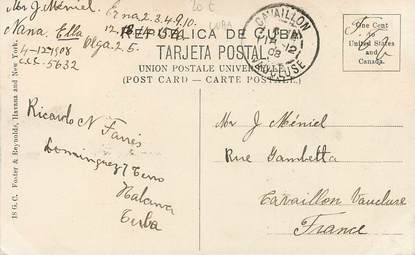 Mr J. Méniel. Erna 2.3.4.9.10.
Nana. Ella
Olga 2.5.
4-12-1908
C.C.C.-5632
20 €
CUBA
REPÚBLICA DE CUBA
TARJETA POSTAL
UNION POSTALE UNIVERSELLE
(POST CARD — CARTE POSTALE.)
CAVAILLON
VAUCLUSE
One Cent
to
United States
and
Canada.
18 G.C. Foster & Reynolds, Havana and New York.
Ricardo N Farrés
Dominguez 7 Cerro
Habana
Cuba
Mr J Méniel
Rue Gambetta
Cavaillon Vaucluse
France